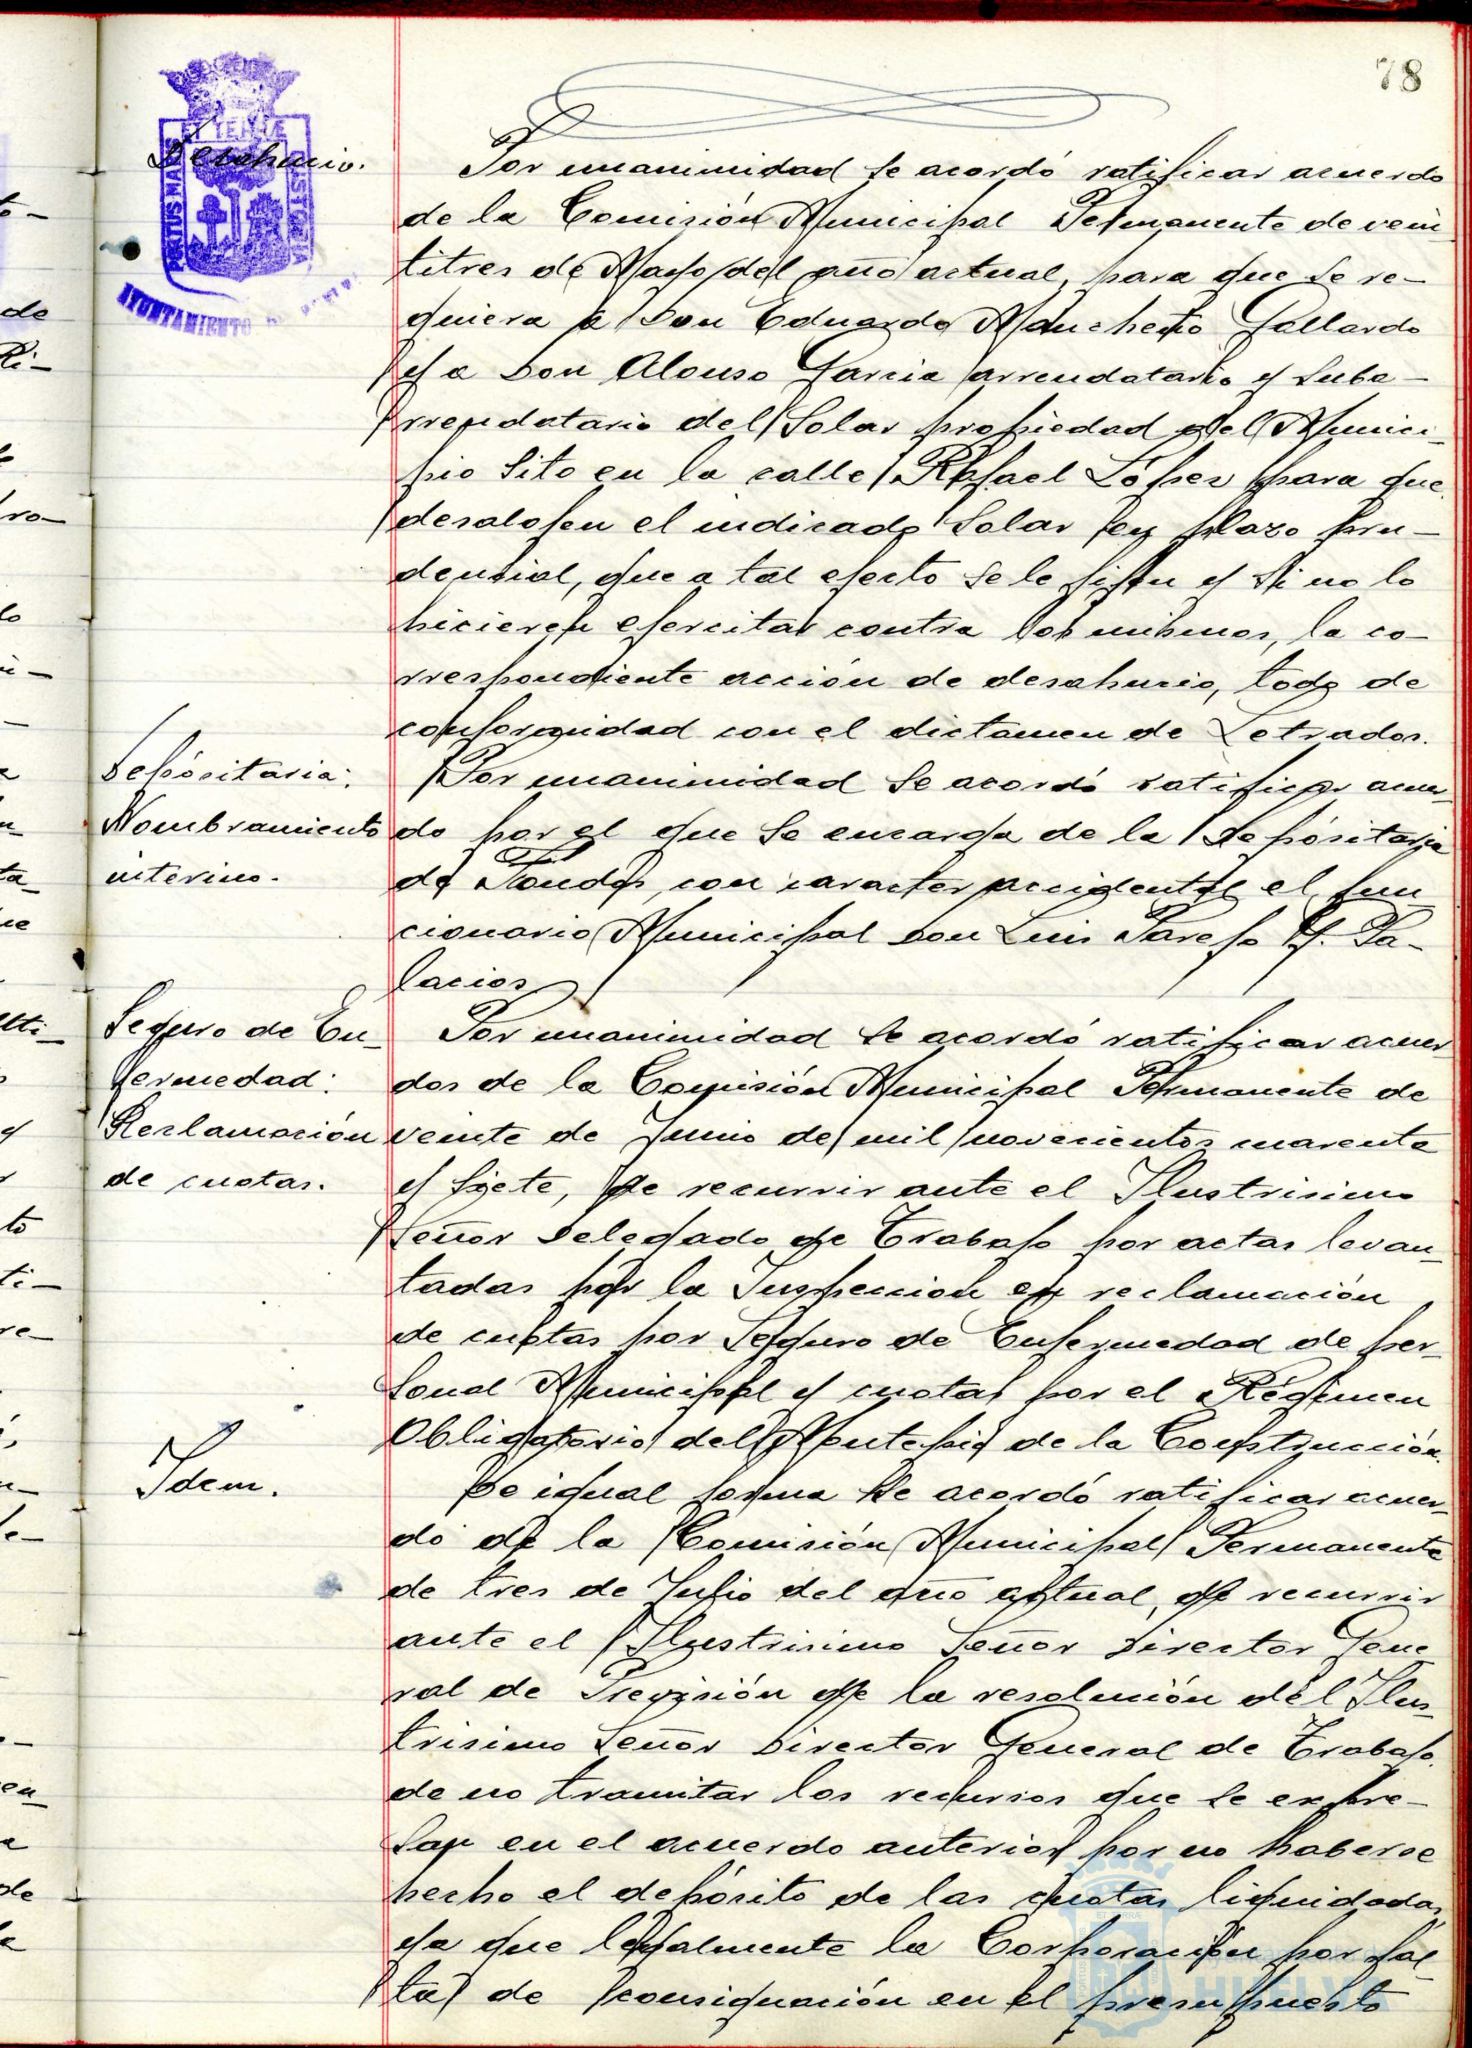 78
Desahucio.
Por unanimidad se acordó ratificar acuerdo
de la Comisión Municipal Permanente de vein
titres de Mayo del año actual, para que se re-
quiera a Don Eduardo Mancheño Gallardo
y a Don Alonso Garcia arrendatario y suba-
rrendatario del Solar propiedad del Munici-
pio sito en la calle Rafael López para que
desalojen el indicado Solar en plazo pru-
dencial, que a tal efecto se le fijen y si no lo
hicieren ejercitar contra los mismos, la co-
rrespondiente acción de desahucio, todo de
conformidad con el dictamen de Letrados.
Depósitaria:
Nombramiento
interino.
Por unanimidad se acordó ratificar acuer-
do por el que se encarga de la Depósitaria
de Fondos, con caracter accidental el fun
cionario Municipal Don Luis Parejo P. Pa-
lacios
Seguro de En-
fermedad:
Reclamación
de cuotas.
Por unanimidad se acordó ratificar acuer
dos de la Comisión Municipal Permanente de
veinte de Junio de mil novecientos cuarenta
y siete, de recurrir ante el Ilustrisimo
Señor Delegado de Trabajo por actas levan-
tadas por la Inspeccion en reclamación
de cuotas por Seguro de Enfermedad de per-
sonal Municipal y cuotas por el Régimen
Obligatorio del Montepio de la Construcción.
Idem.
De igual forma se acordó ratificar acuer-
do de la Comisión Municipal Permanente
de tres de Julio del año actual, de recurrir
ante el Ilustrisimo Señor Director Gene
ral de Previsión de la resolución del Ilus-
trisimo Señor Director General de Trabajo.
de no tramitar los recursos que se expre-
san en el acuerdo anterior por no haberse
hecho el depósito de las cuotas liquidadas,
ya que legalmente la Corporación por fal-
ta de consignación en el presupuesto
PORTUS MARIS
ET TERRAE
CUSTODIA
AYUNTAMIENTO DE
HUELVA